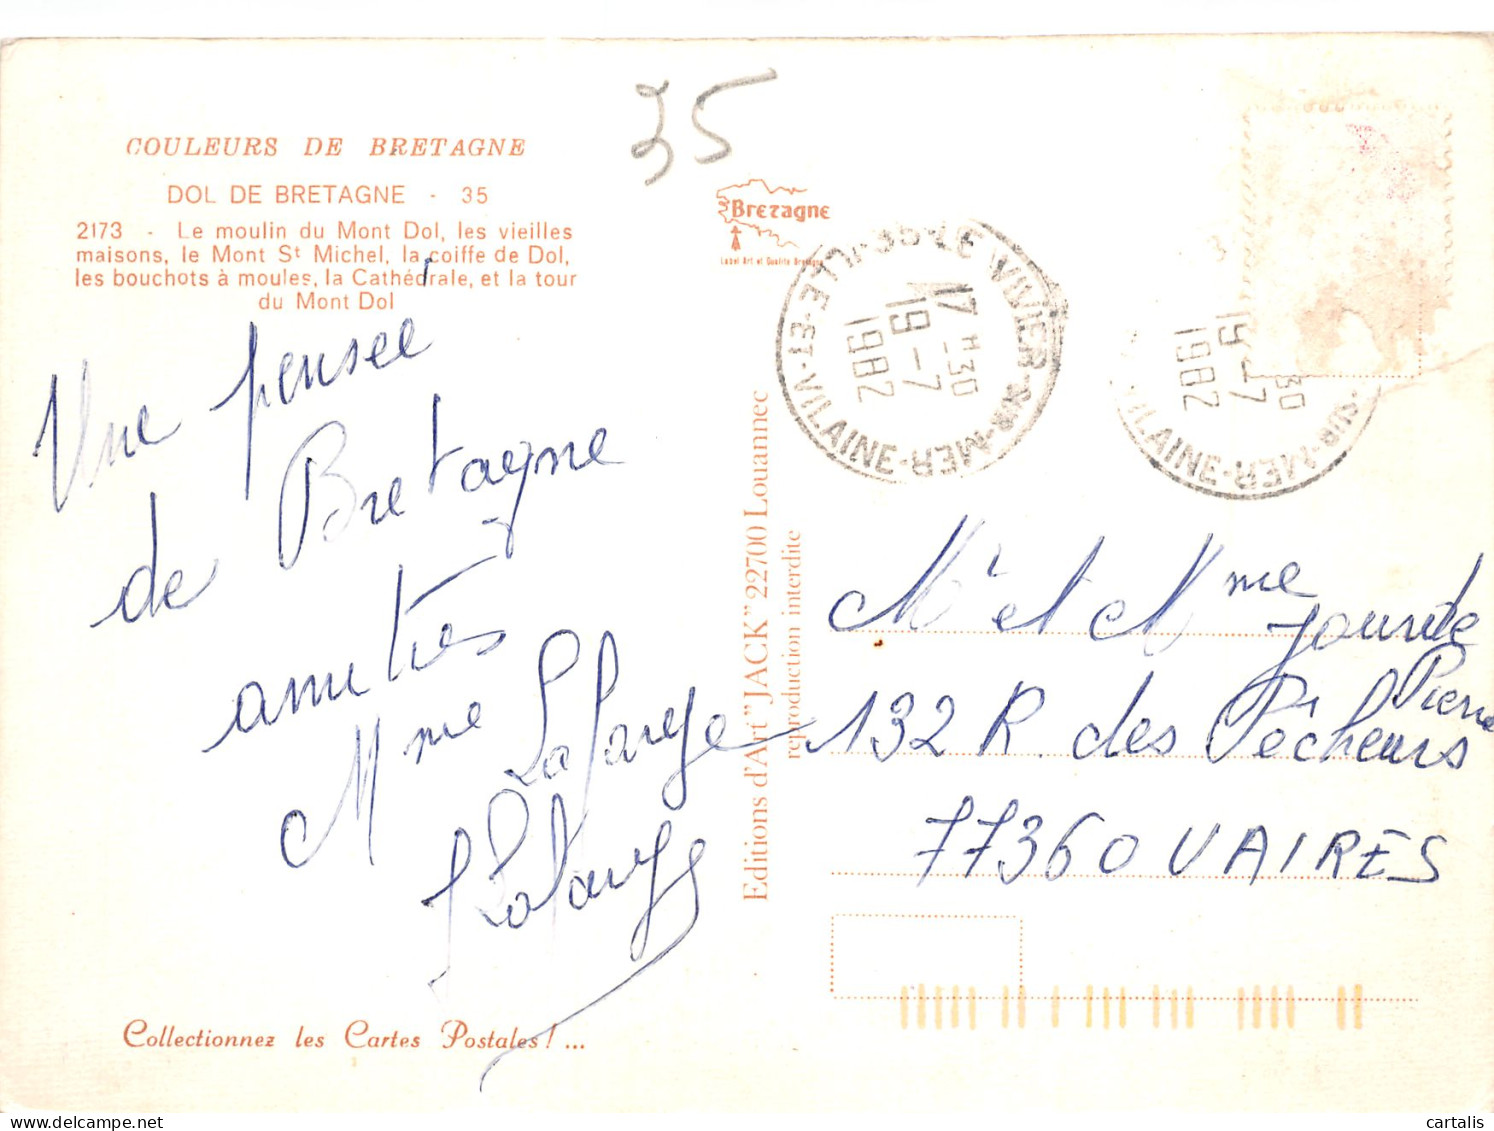 35
COULEURS DE BRETAGNE
DOL DE BRETAGNE - 35
2173 - Le moulin du Mont Dol, les vieilles
maisons, le Mont St Michel, la coiffe de Dol,
les bouchots à moules, la Cathédrale, et la tour
du Mont Dol
Une pensée
de Bretagne
amitiés
Mme Lafarge
Lafarge
Collectionnez les Cartes Postales ! ...
Bretagne
Label Art et Qualité Bretagne
Editions d'Art "JACK" 22700 Louannec
reproduction interdite
35-LE VIVIER-SUR-MER
ILLE-ET-VILAINE
17H30
19-7
1982
30
19-7
1982
VILAINE
SUR-MER
Mr et Mme
Pierre
132 R. des Pêcheurs
77360 VAIRES
cartalis